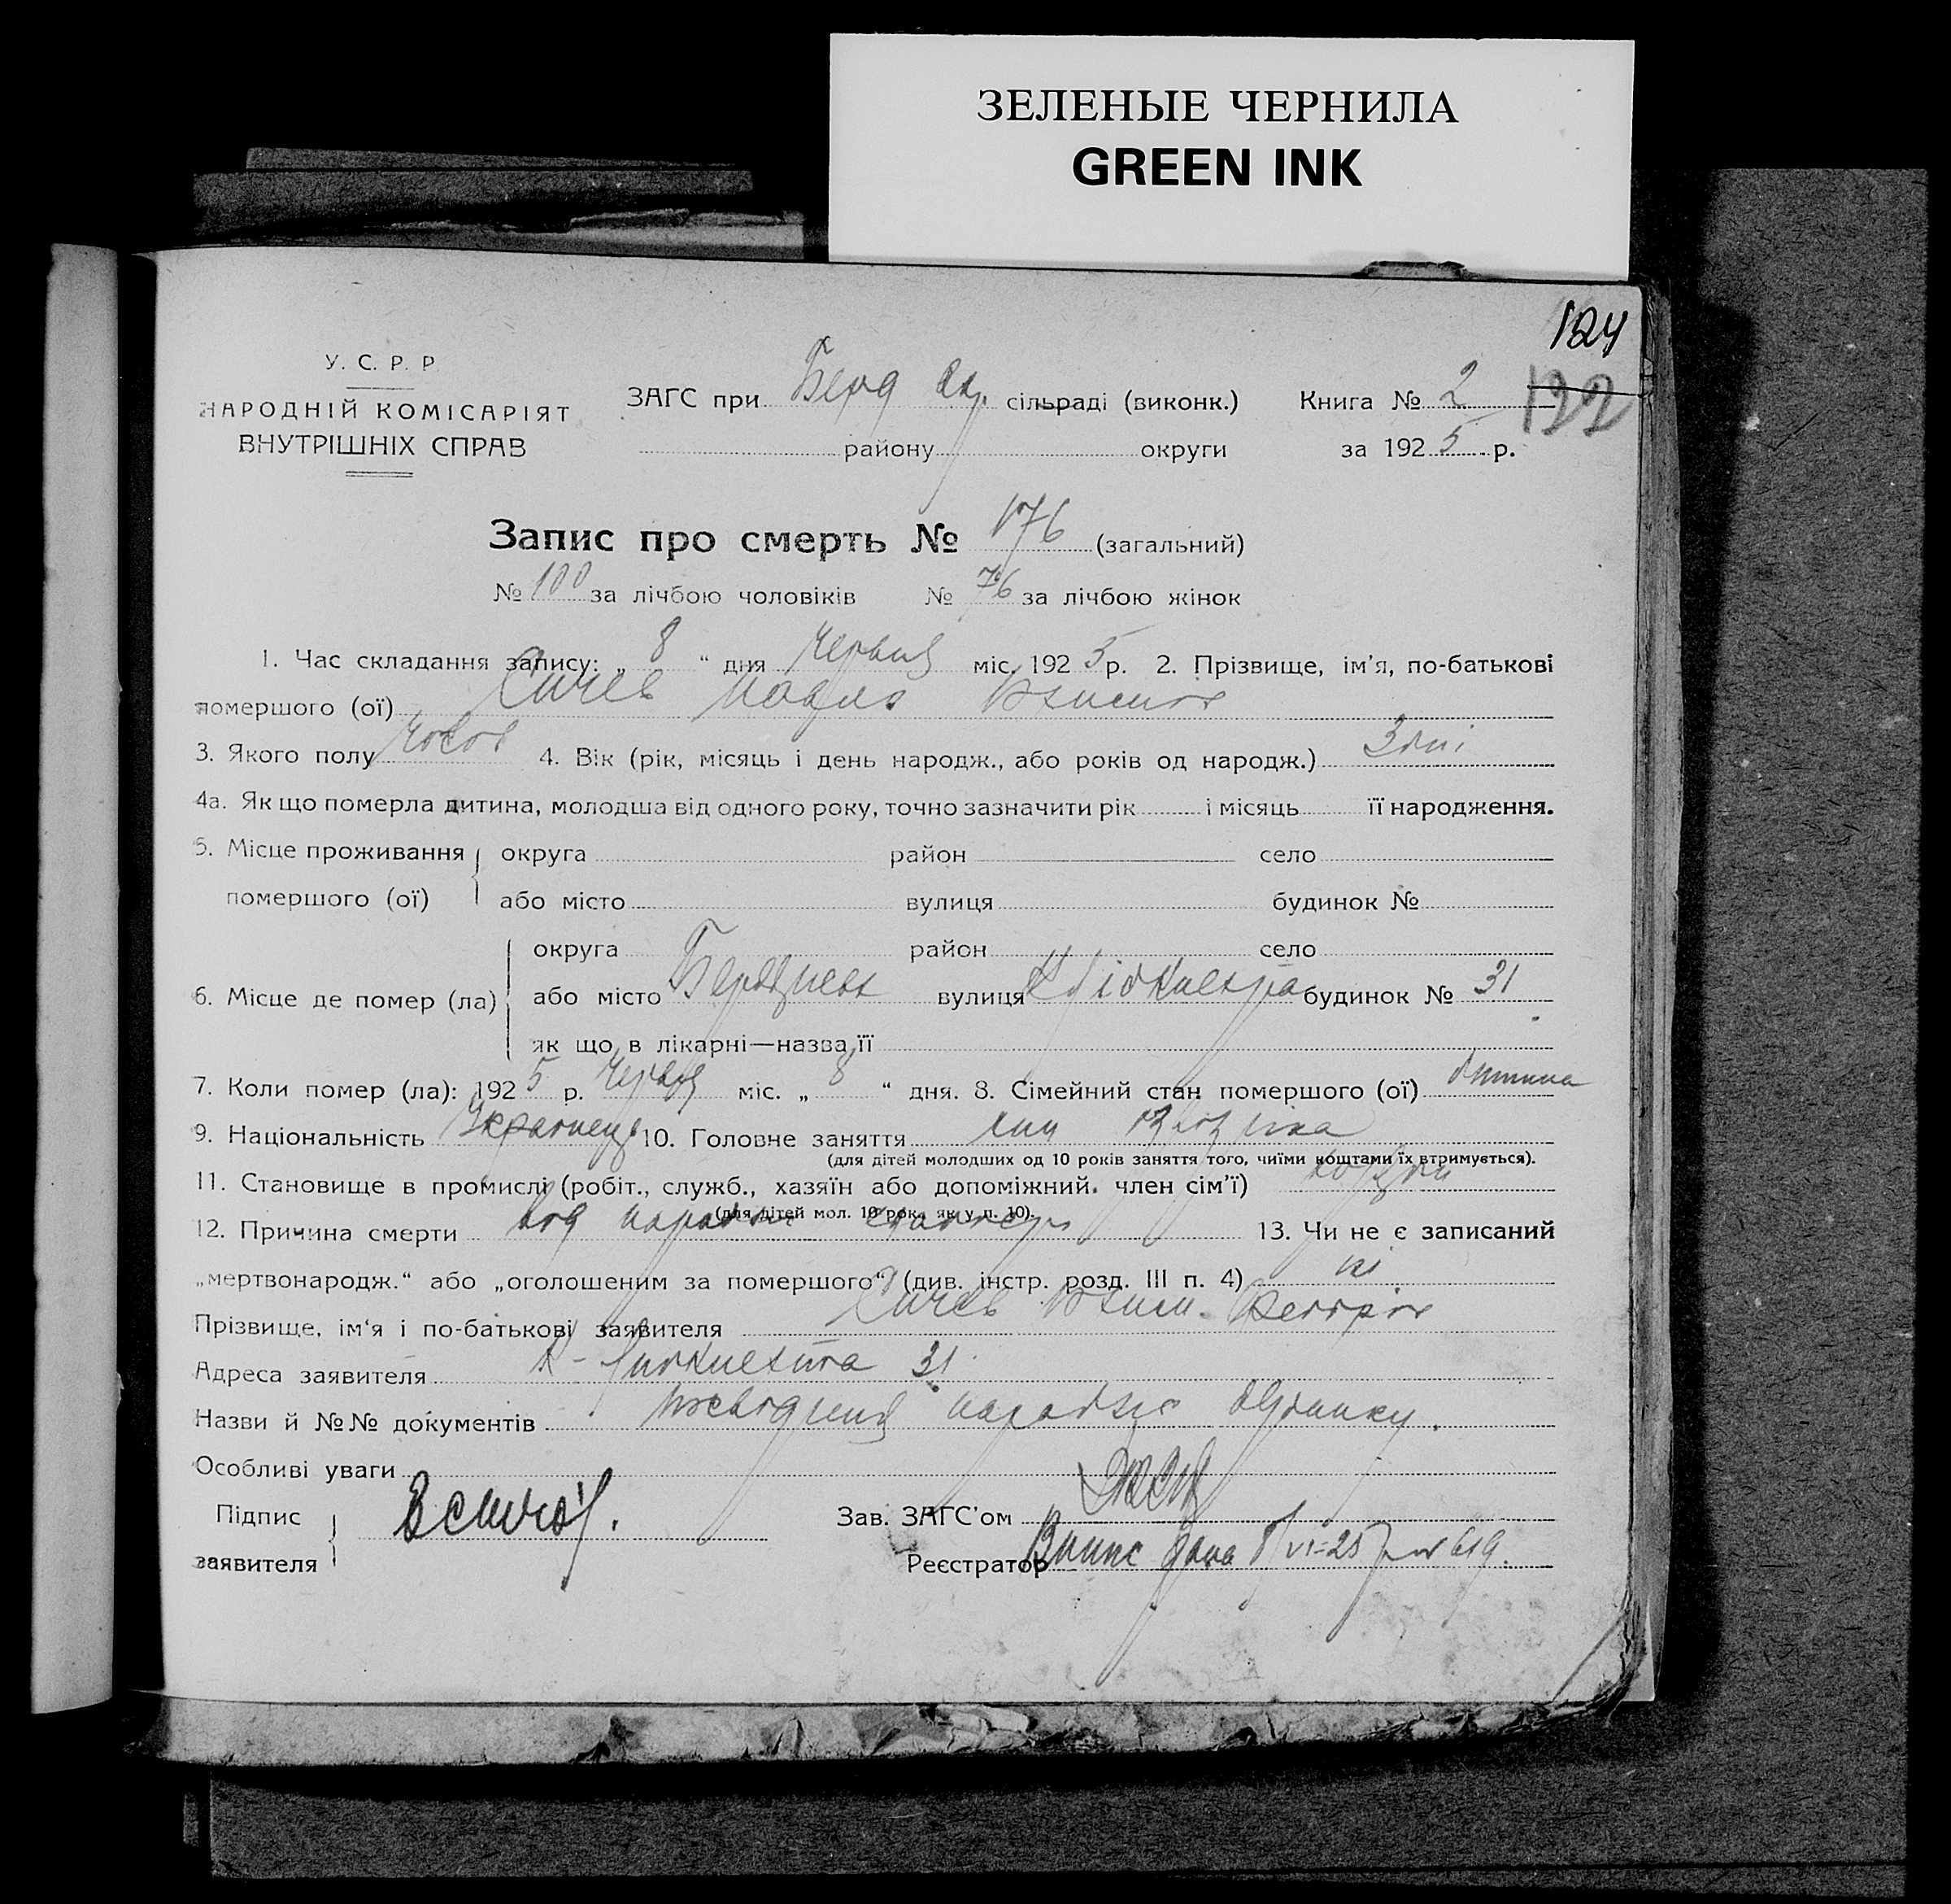 ЗЕЛЕНЫЕ ЧЕРНИЛА
GREEN INK
124
122
У. С. Р. Р
НАРОДНІЙ КОМІСАРІЯТ
ВНУТРІШНІХ СПРАВ
ЗАГС при Берд окр. сільраді (виконк.) Книга № 2
району округи за 1925 р.
Запис про смерть № 176 (загальний)
№ 100 за лічбою чоловіків № 76 за лічбою жінок
1. Час складання запису: „ 8 “ дня Червня міс. 1925 р. 2. Прізвище, ім’я, по-батькові
помершого (ої) Сичев Павло
3. Якого полу Чолов 4. Вік (рік, місяць і день народж., або років од народж.) 3 дні
4а. Як що померла дитина, молодша від одного року, точно зазначити рік і місяць її народження.
5. Місце проживання округа район село
помершого (ої) або місто вулиця будинок №
округа район село
6. Місце де помер (ла) або місто вулиця будинок № 31
як що в лікарні—назва її
7. Коли помер (ла): 1925 р. Червня міс. „ 8 “ дня. 8. Сімейний стан помершого (ої) дитина
9. Національність Українець 10. Головне заняття син
(для дітей молодших од 10 років заняття того, чиїми коштами їх втримується).
11. Становище в промислі (робіт., служб., хазяїн або допоміжний. член сім’ї)
(для дітей мол. 10 рок. як у п. 10).
12. Причина смерти 13. Чи не є записаний
„мертвонародж.“ або „оголошеним за помершого“ (див. інстр. розд. III п. 4) ні
Прізвище, ім‘я і по-батькові заявителя Сичев
Адреса заявителя 31
Назви й №№ документів
Особливі уваги
Підпис
заявителя
Зав. ЗАГС’ом
Реєстратор Випис дана 8/VI-25 619.